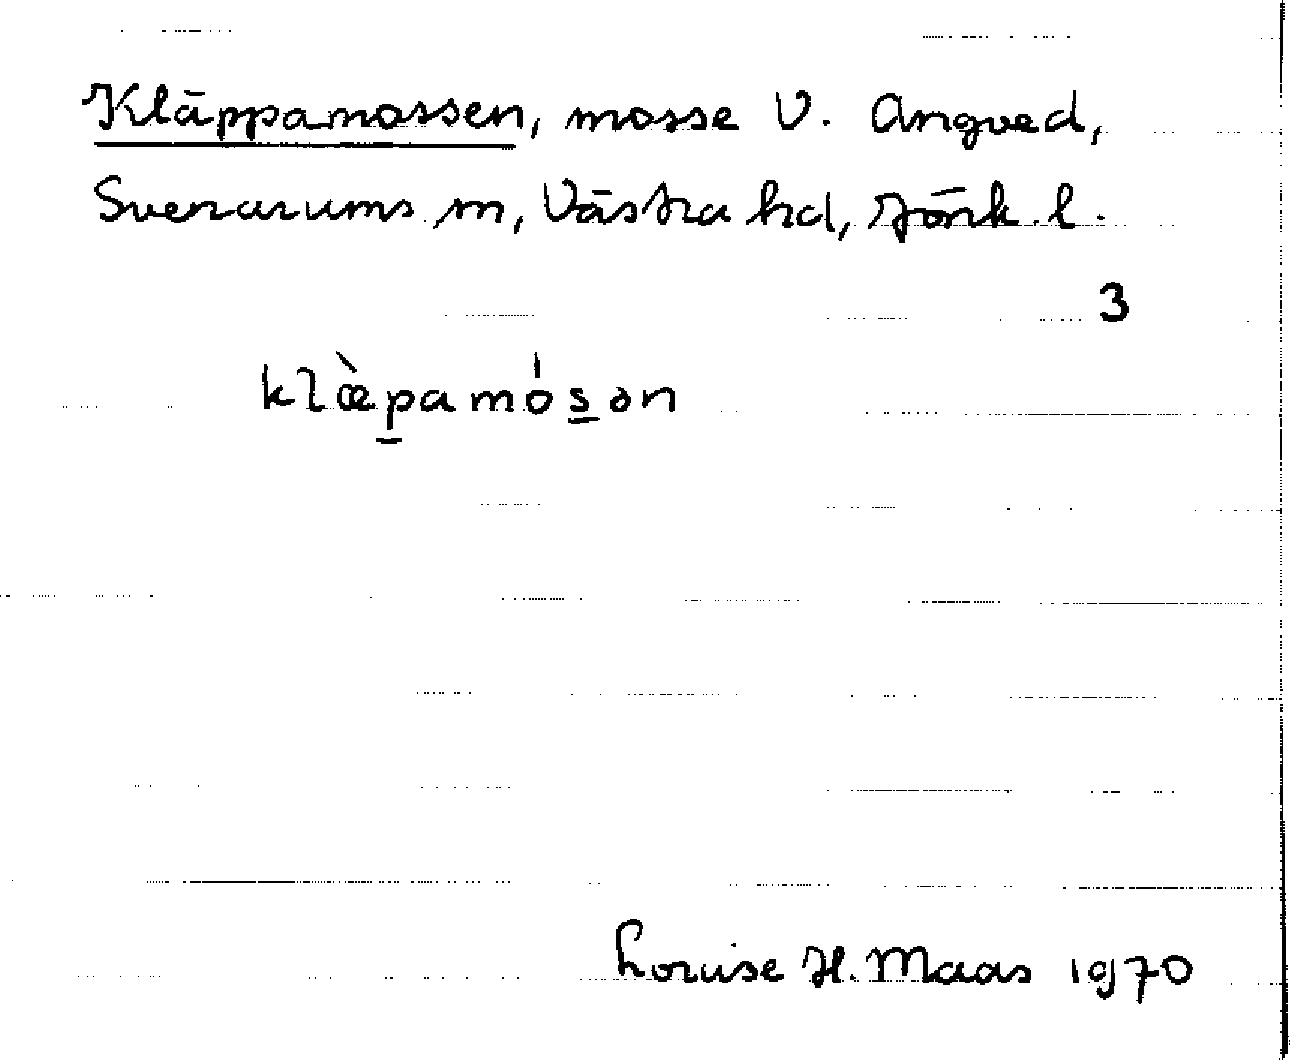 Kläppamossen, mosse V. Angved,
Svenarums sn, Västra hd, Jönk. l.
3
klæ̀pamósən
Louise H. Maas 1970